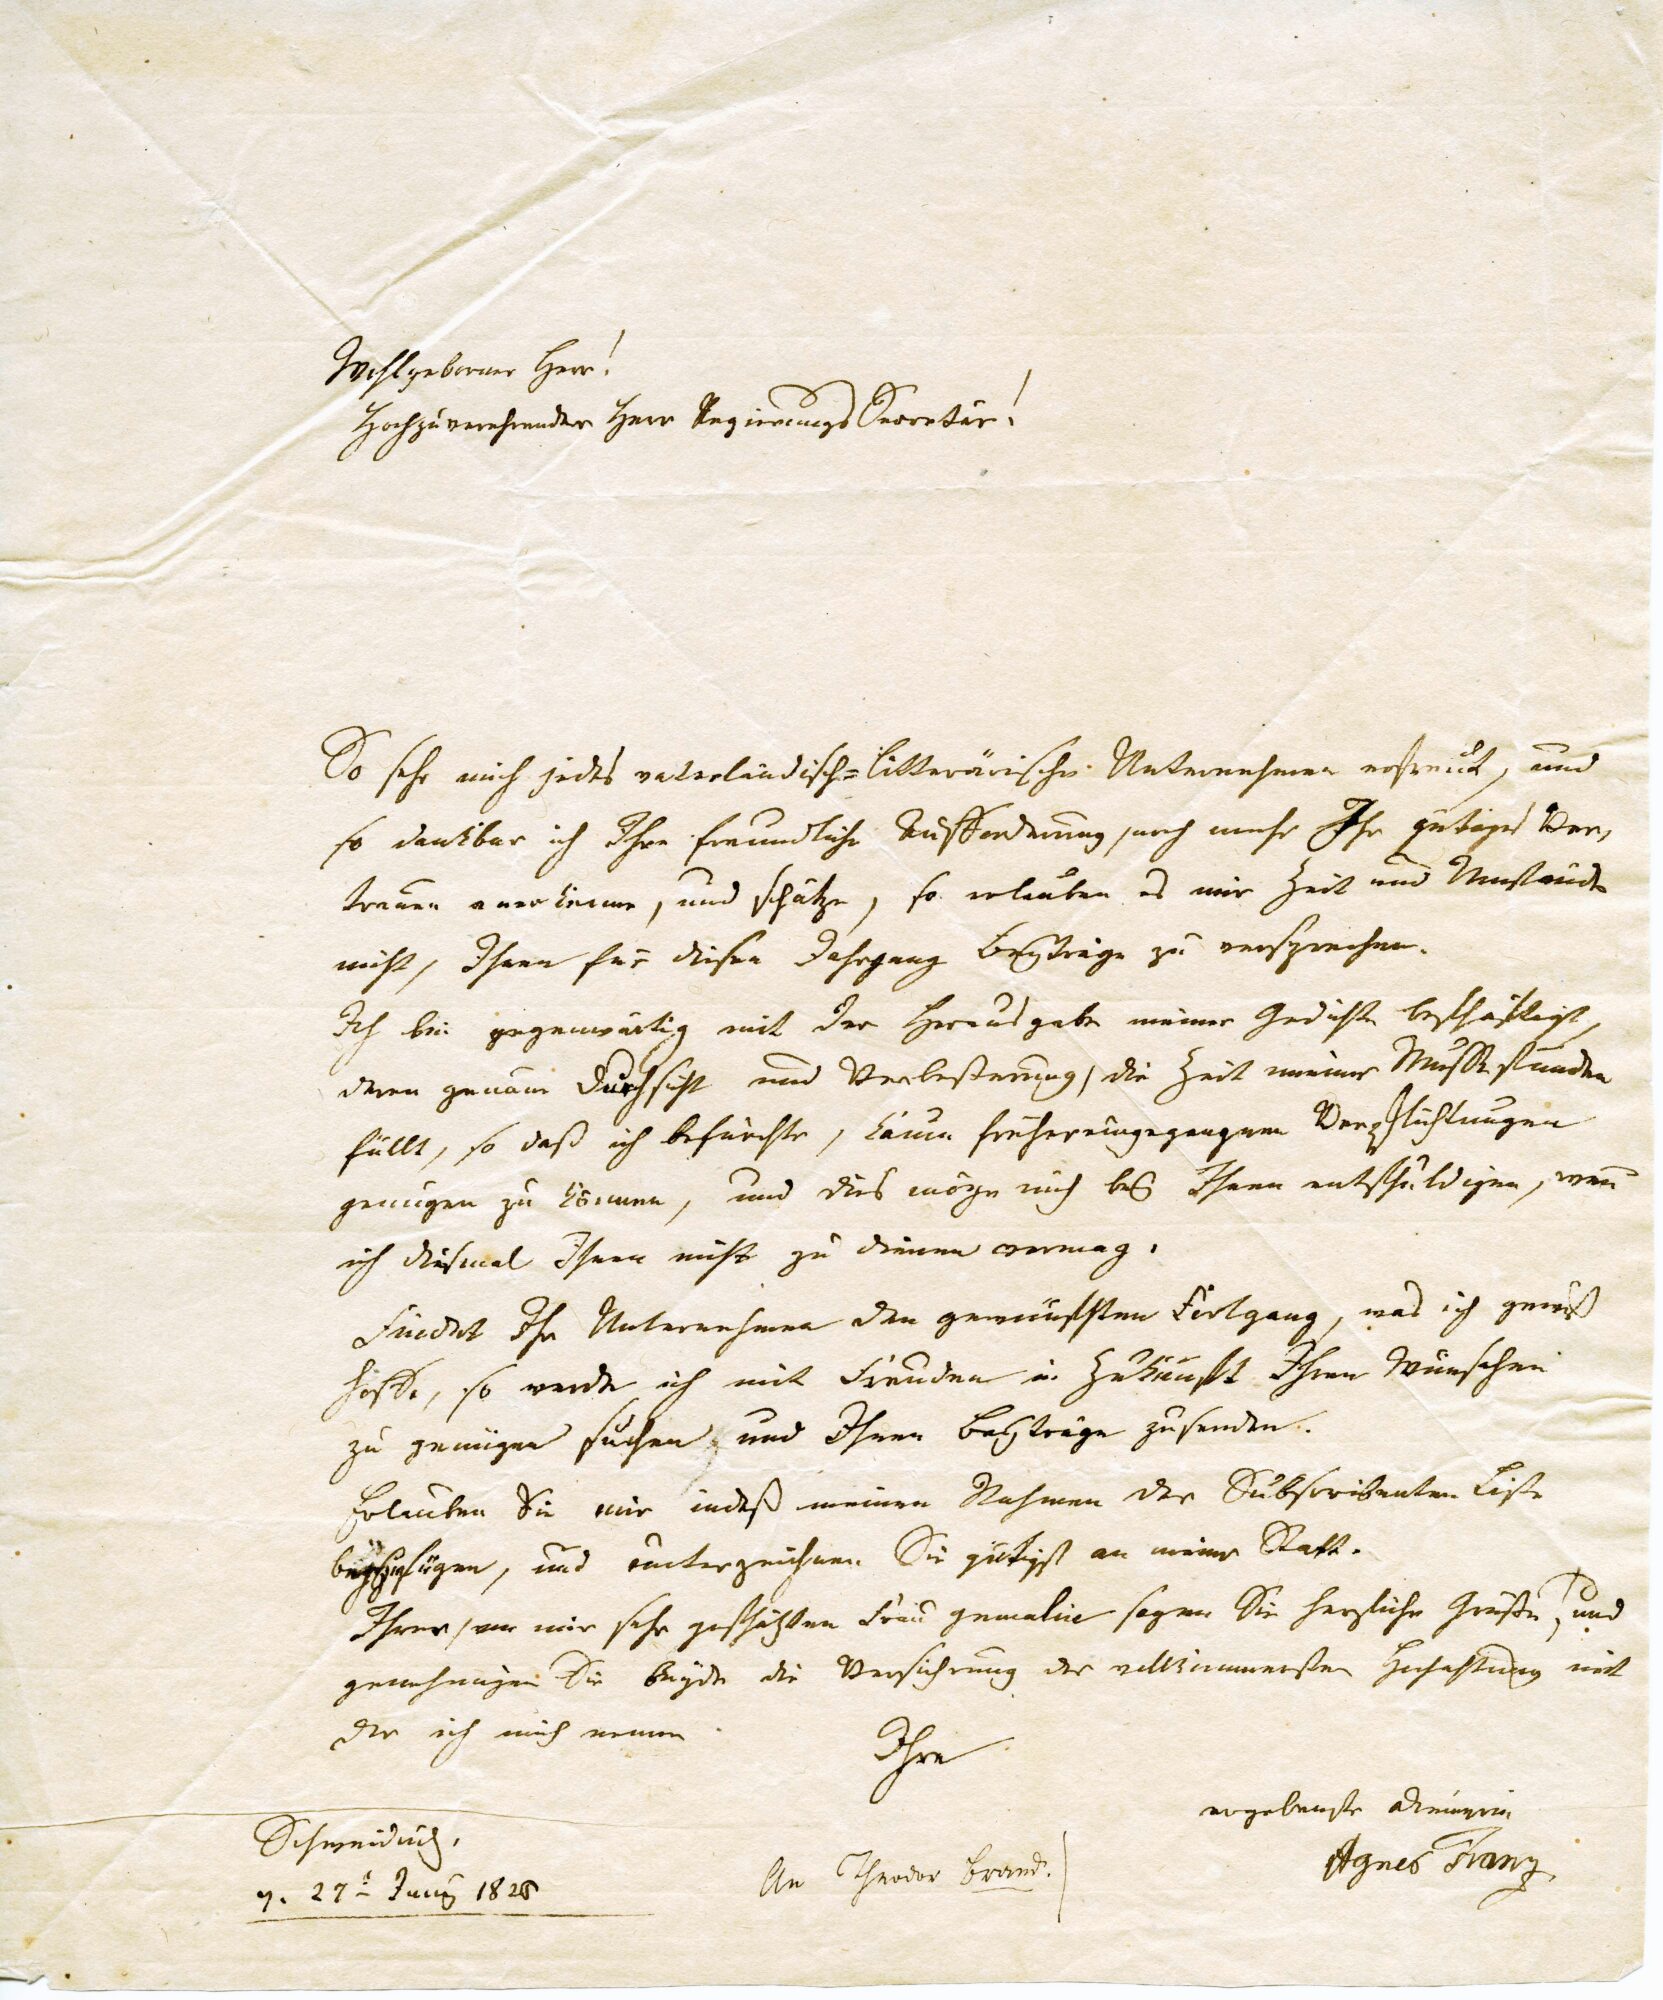 Wohlgeborner Herr!
Hochzuverehrender Herr Regierungs Secretär!
So sehr mich jedes vaterländisch=litterärische Unternehmen erfreut, und
so dankbar ich Ihre freundliche Aufforderung, noch mehr Ihr gütiges Ver,
trauen anerkenne, und schätze, so erlauben es mir Zeit und Umstände
nicht, Ihnen für diesen Jahrgang Beyträge zu versprechen.
Ich bin gegenwärtig mit der Herausgabe meiner Gedichte beschäftigt,
deren genaue Durchsicht und Verbesserung, die Zeit meiner Mussestunden
füllt, so daß ich befürchte, kaum früher eingegangnen Verpflichtungen
genügen zu können, und dies möge mich bey Ihnen entschuldigen, wenn
ich diesmal Ihnen nicht zu dienen vermag.
Findet Ihr Unternehmen den gewünschten Fortgang, was ich gewiß
hoffe, so werde ich mit Freuden in Zukunft Ihren Wünschen
zu genügen suchen und Ihnen Beyträge zusenden.
Erlauben Sie mir indeß meinen Nahmen der Subscribenten Liste
beyzufügen, und unterzeichnen Sie gütigst an meiner Statt.
Ihrer, von mir sehr geschätzten Frau Gemalin sagen Sie herzliche Grüße, und
genehmigen Sie beyde die Versichrung der vollkommensten Hochachtung mit
der ich mich nenne
Ihre
ergebenste Dienerin
Agnes Franz.
Schweidnitz.
d. 27t Juny 1828
An Theodor Brand.